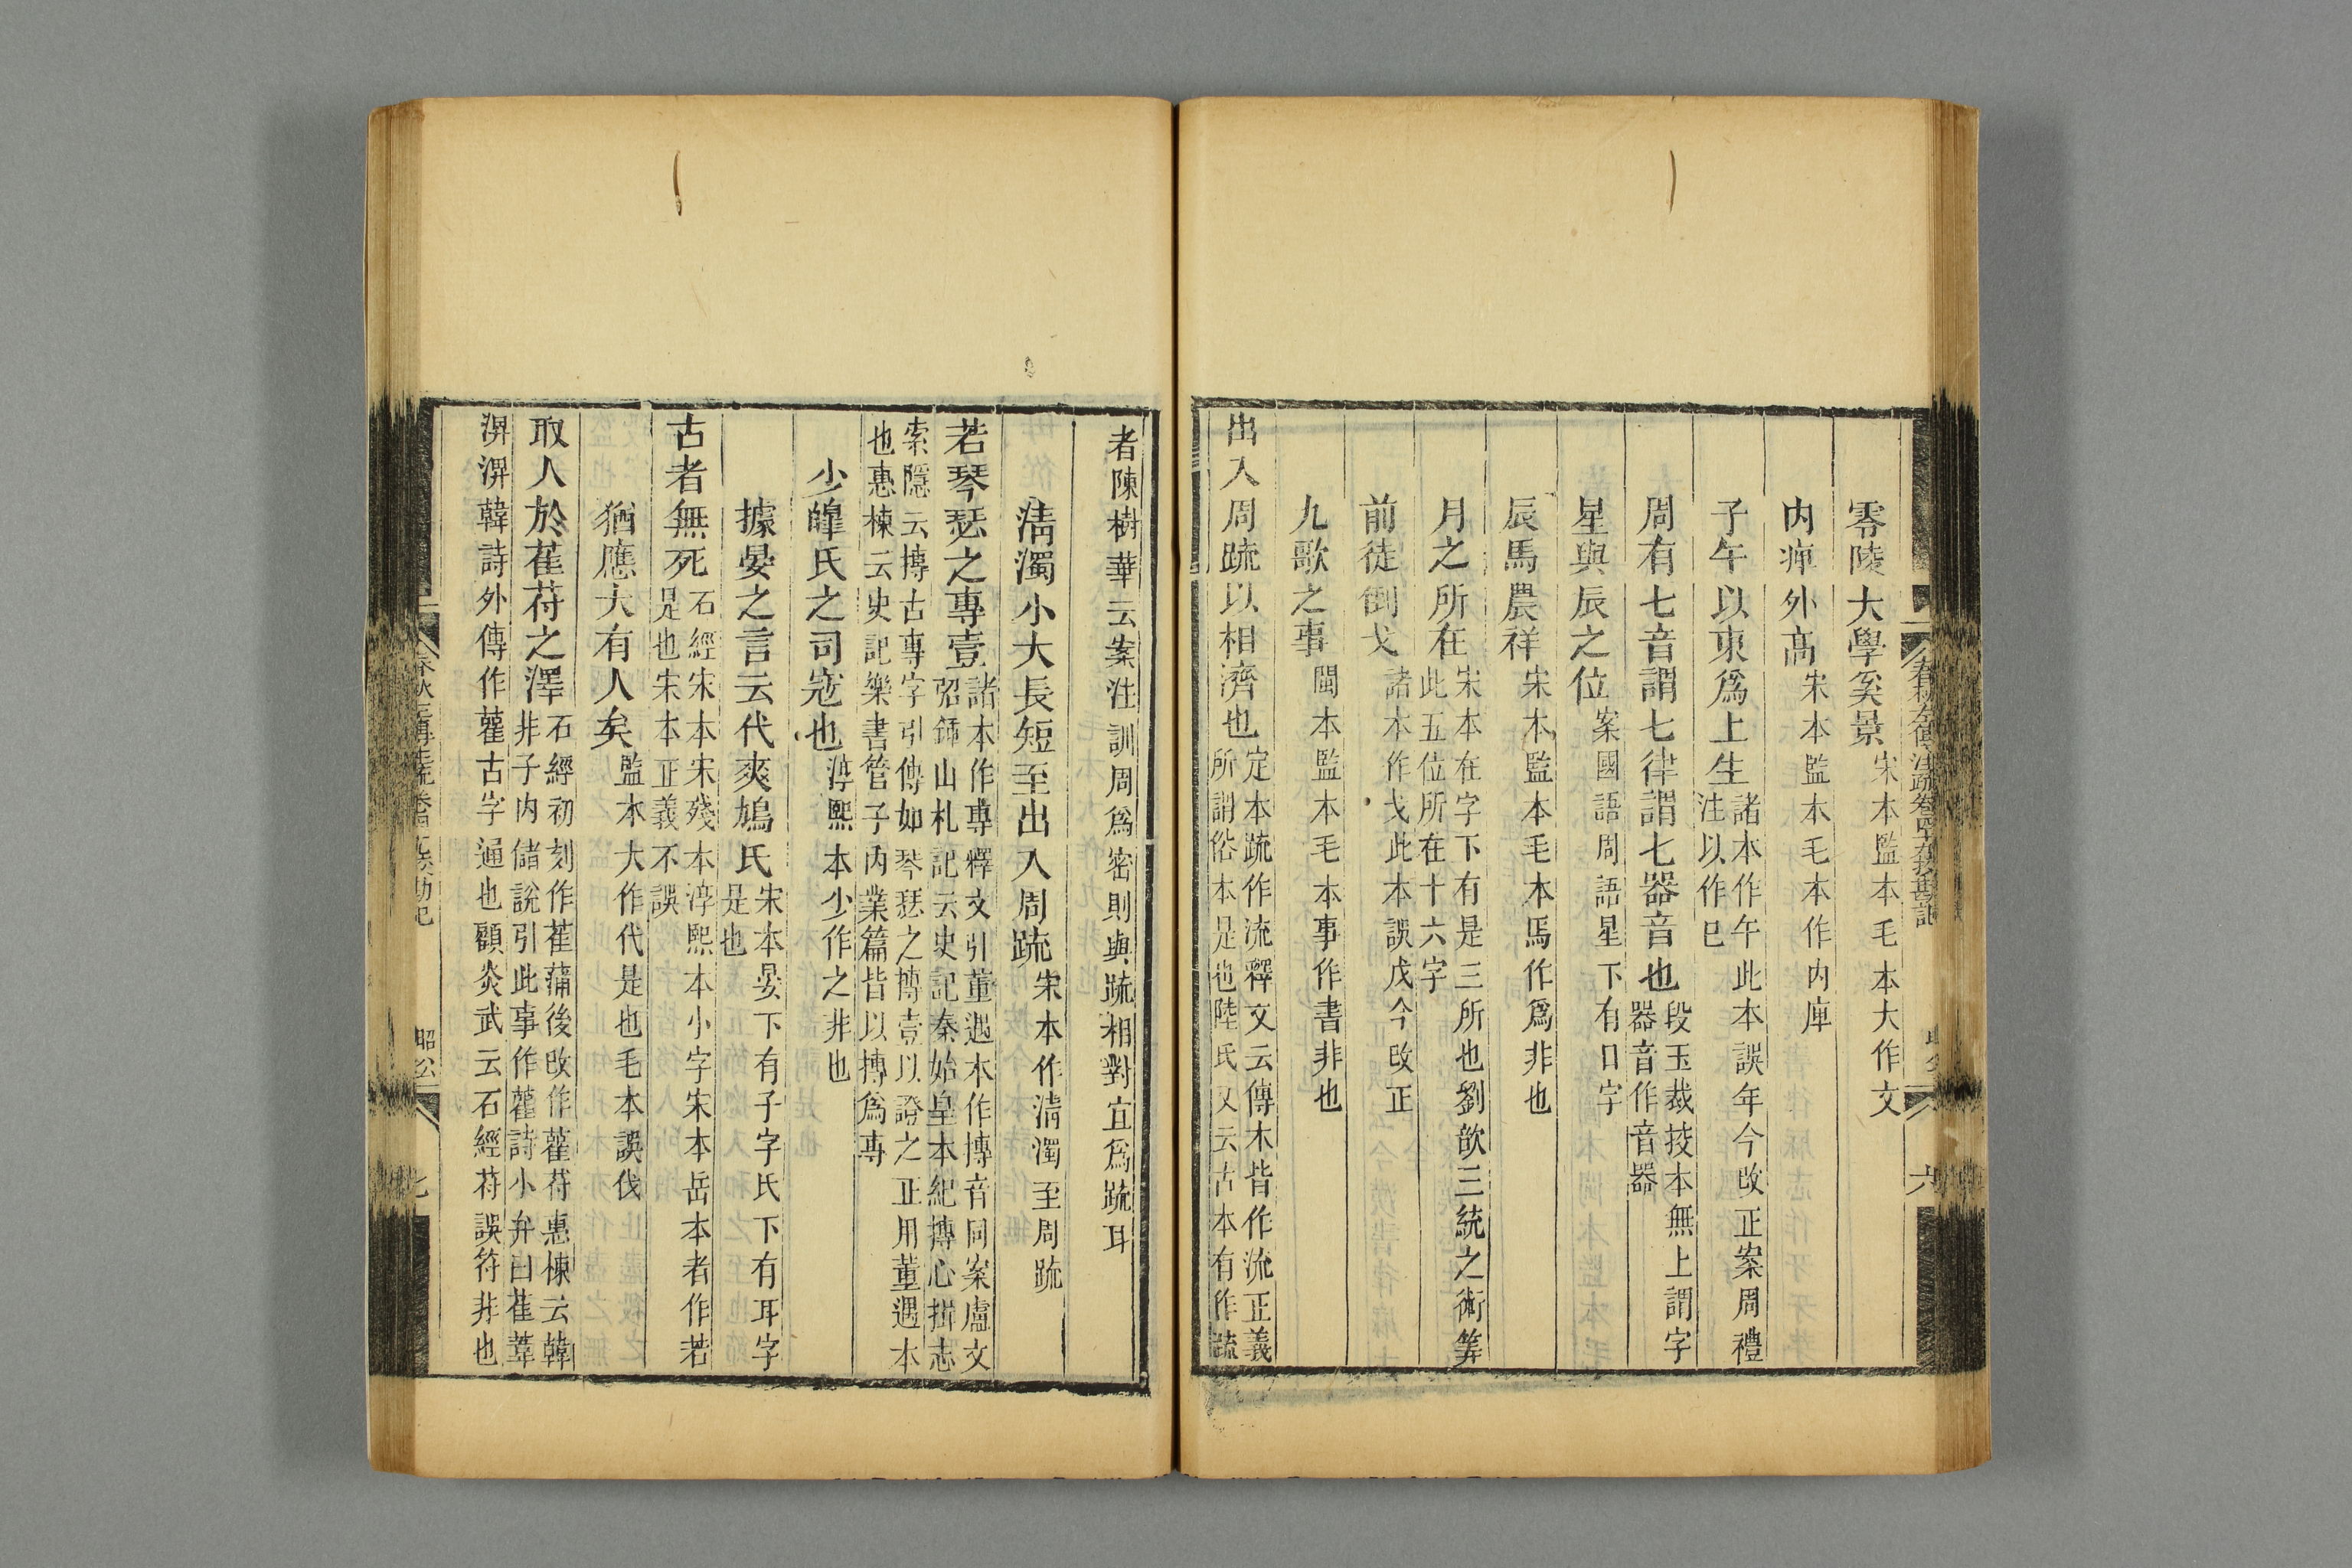 零陵大學奚景宋本監本毛本大作文
内庳外高宋本監本毛本作内庫
子午以東爲上生諸本作午此本誤年今改正案周禮
注以作巳
周有七音謂七律謂七器音也段玉裁挍本無上謂字
器音作音器
星與辰之位案國語周語星下有日字
辰馬農祥宋本監本毛本馬作爲非也
月之所在宋本在字下有是三所也劉歆三統之術筭
此五位所在十六字
前徒倒戈諸本作戈此本誤戊今改正
九歌之事閩本監本毛本事作書非也
出入周疏以相濟也定本疏作流釋文云傳本皆作流正義
所謂俗本是也陸氏又云古本有作疏
春秋左傳注疏卷四十九挍勘記
昭公
六
者陳樹華云案注訓周爲密則與疏相對宜爲疏耳
清濁小大長短至出入周疏宋本作清濁至周疏
若琴瑟之專壹諸本作專釋文引董遇本作摶音同案盧文
弨鍾山札記云史記秦始皇本紀摶心揖志
索隱云摶古專字引傳如琴瑟之摶壹以證之正用董遇本
也惠棟云史記樂書管子内業篇皆以摶爲專
少皥氏之司寇也淳熙本少作之非也
據晏之言云代爽鳩氏宋本晏下有子字氏下有耳字
是也
古者無死石經宋本宋殘本淳熙本小字宋本岳本者作若
是也宋本正義不誤
猶應大有人矣監本大作代是也毛本誤伐
取人於萑苻之澤石經初刻作萑蒲後改作雚苻惠棟云韓
非子内儲說引此事作雚詩小弁曰萑葦
淠淠韓詩外傳作雚古字通也顧炎武云石經苻誤符非也
春秋左傳注疏卷四十九挍勘記
昭公
七